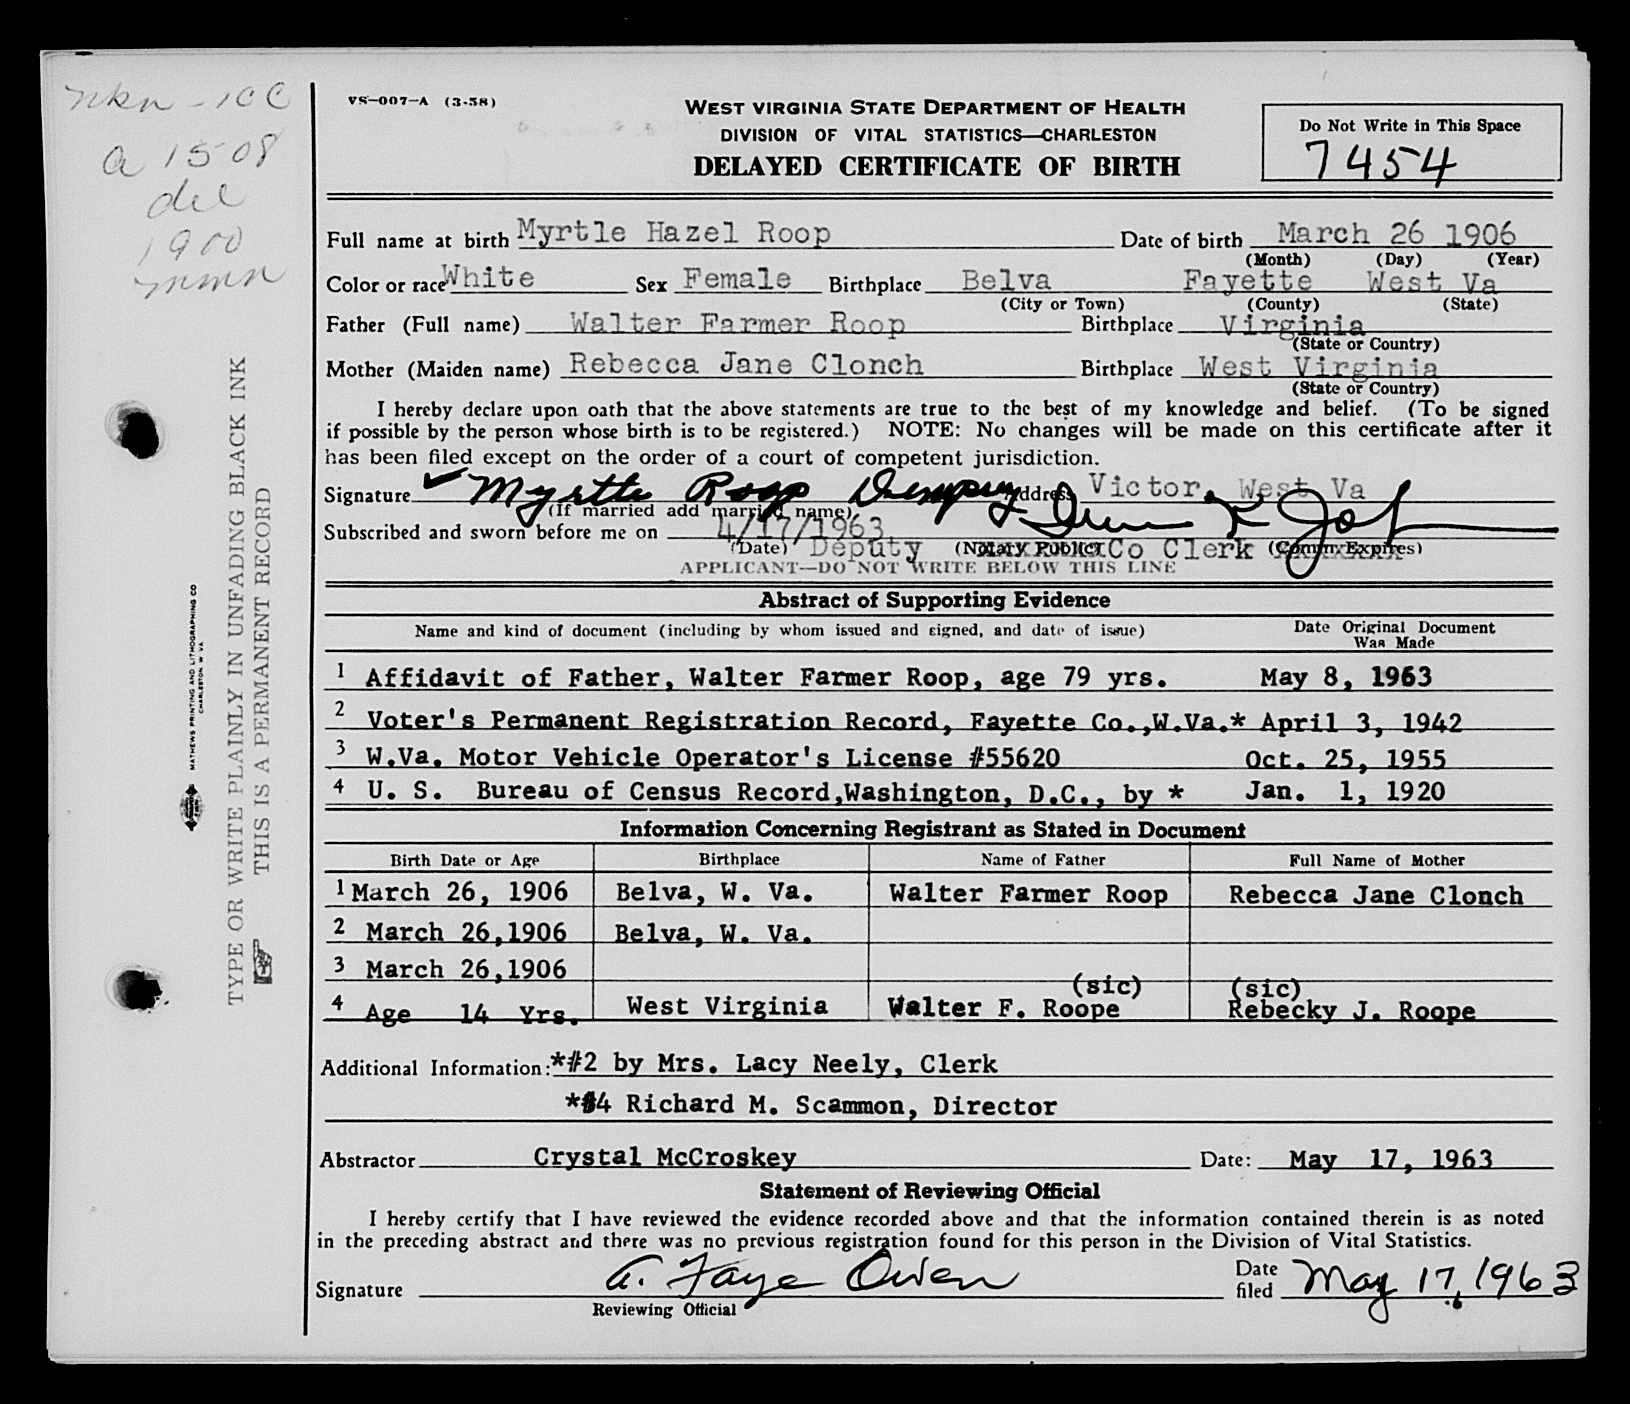 a 1508
del
1900
VS-007-A (3-58)
WEST VIRGINIA STATE DEPARTMENT OF HEALTH
DIVISION OF VITAL STATISTICS—CHARLESTON
DELAYED CERTIFICATE OF BIRTH
Do Not Write in This Space
7454
Full name at birth Myrtle Hazel Roop Date of birth March 26 1906
(Month) (Day) (Year)
Color or race White Sex Female Birthplace Belva Fayette West Va
(City or Town) (County) (State)
Father (Full name) Walter Farmer Roop Birthplace Virginia
(State or Country)
Mother (Maiden name) Rebecca Jane Clonch Birthplace West Virginia
(State or Country)
I hereby declare upon oath that the above statements are true to the best of my knowledge and belief. (To be signed
if possible by the person whose birth is to be registered.) NOTE: No changes will be made on this certificate after it
has been filed except on the order of a court of competent jurisdiction.
Signature Myrtle Roop Dempsey Address Victor, West Va
(If married add married name)
Subscribed and sworn before me on 4/17/1963
(Date) Deputy (Notary Public) Co Clerk (Comm. Expires)
APPLICANT—DO NOT WRITE BELOW THIS LINE
Abstract of Supporting Evidence
Name and kind of document (including by whom issued and signed, and date of issue) Date Original Document
Was Made
1 Affidavit of Father, Walter Farmer Roop, age 79 yrs. May 8, 1963
2 Voter's Permanent Registration Record, Fayette Co.,W.Va.* April 3, 1942
3 W.Va. Motor Vehicle Operator's License #55620 Oct. 25, 1955
4 U. S. Bureau of Census Record,Washington, D.C., by * Jan. 1, 1920
Information Concerning Registrant as Stated in Document
Birth Date or Age Birthplace Name of Father Full Name of Mother
1 March 26, 1906 Belva, W. Va. Walter Farmer Roop Rebecca Jane Clonch
2 March 26,1906 Belva, W. Va.
3 March 26,1906
(sic) (sic)
4 Age 14 Yrs. West Virginia Walter F. Roope Rebecky J. Roope
Additional Information: *#2 by Mrs. Lacy Neely, Clerk
*#4 Richard M. Scammon, Director
Abstractor Crystal McCroskey Date: May 17, 1963
Statement of Reviewing Official
I hereby certify that I have reviewed the evidence recorded above and that the information contained therein is as noted
in the preceding abstract and there was no previous registration found for this person in the Division of Vital Statistics.
Signature A. Faye Owen Date filed May 17, 1963
Reviewing Official
TYPE OR WRITE PLAINLY IN UNFADING BLACK INK
THIS IS A PERMANENT RECORD
MATHEWS PRINTING AND LITHOGRAPHING CO
CHARLESTON W VA